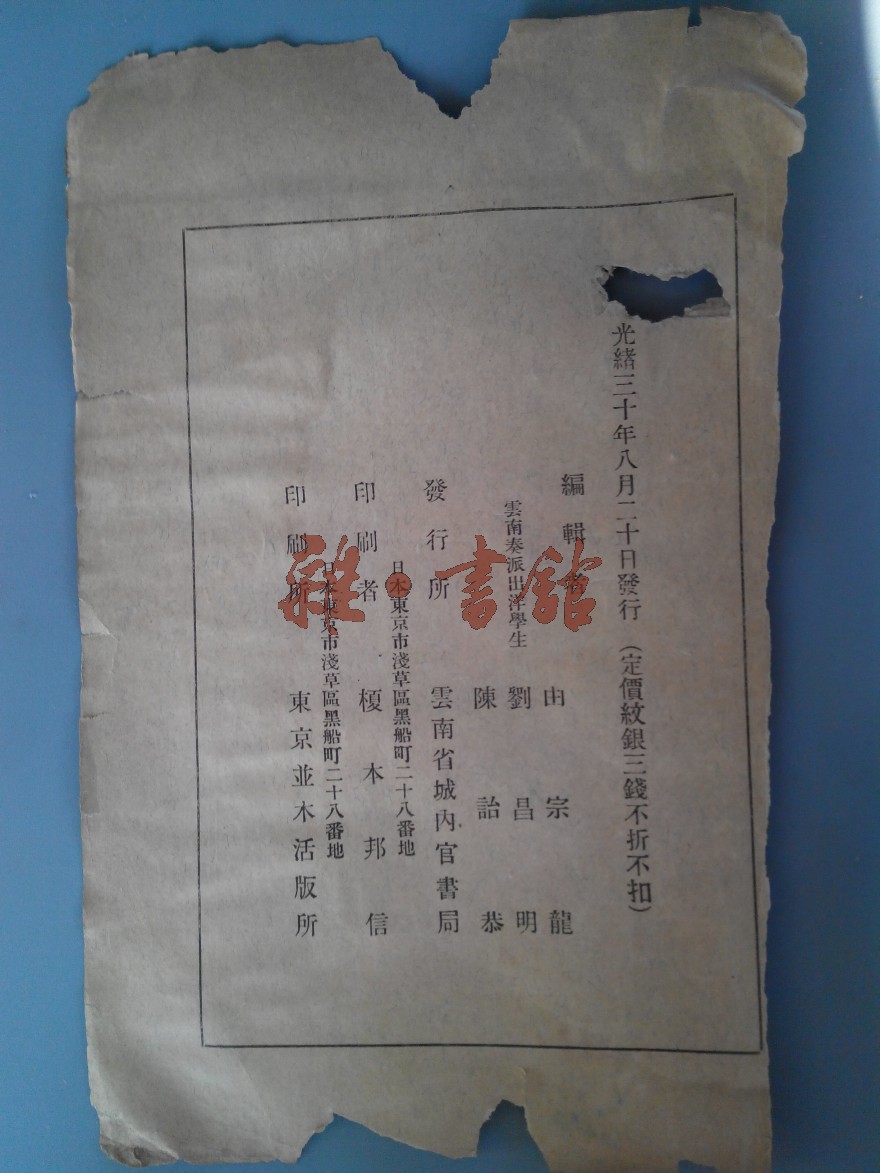 光緒三十年八月二十日發行（定價紋銀三錢不折不扣）
編輯者
由宗龍
雲南奏派出洋學生 劉昌明
陳詒恭
發行所 雲南省城內官書局
日本東京市淺草區黑船町二十八番地
印刷者 榎本邦信
日本東京市淺草區黑船町二十八番地
印刷所 東京並木活版所
雜·書館